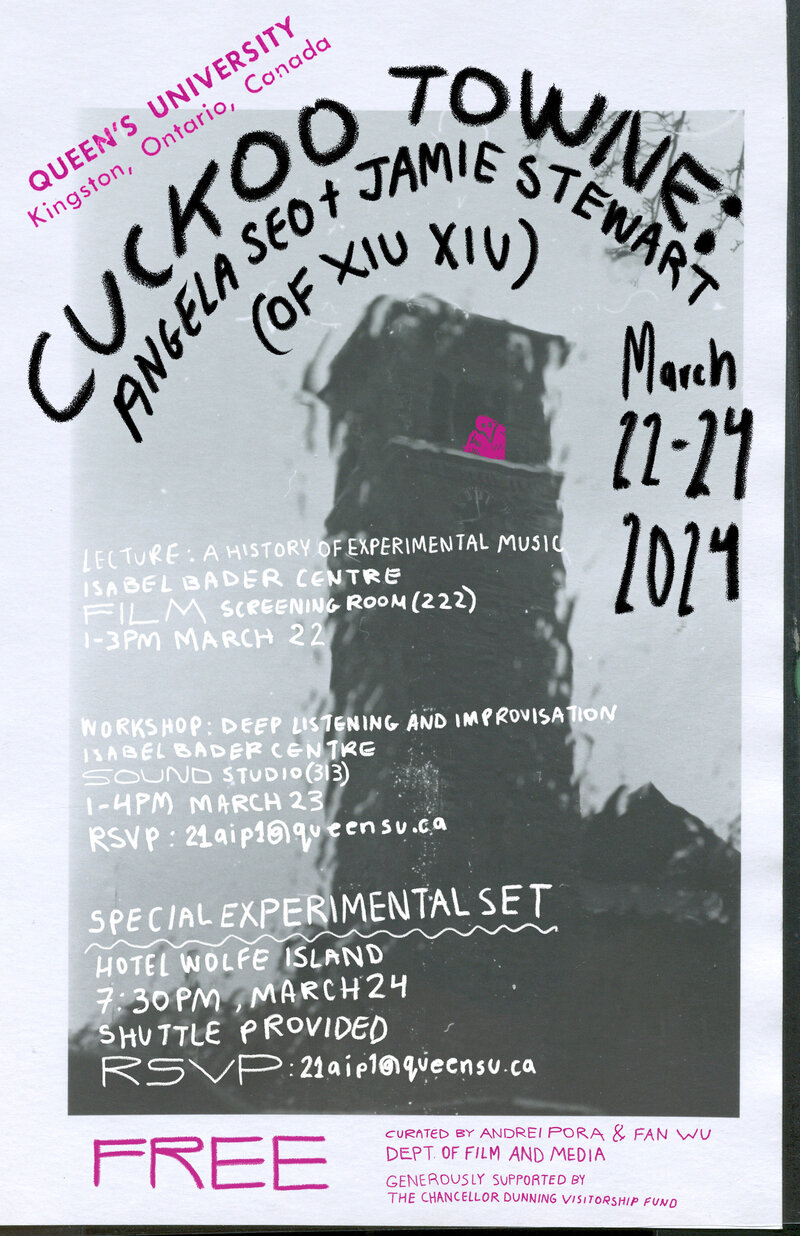 QUEEN'S UNIVERSITY
Kingston, Ontario, Canada
CUCKOO TOWNE:
ANGELA SEO + JAMIE STEWART
(OF XIU XIU)
March
22-24
2024
LECTURE: A HISTORY OF EXPERIMENTAL MUSIC
ISABEL BADER CENTRE
FILM SCREENING ROOM (222)
1-3PM MARCH 22
WORKSHOP: DEEP LISTENING AND IMPROVISATION
ISABEL BADER CENTRE
SOUND STUDIO (313)
1-4PM MARCH 23
RSVP: 21aip1@queensu.ca
SPECIAL EXPERIMENTAL SET
HOTEL WOLFE ISLAND
7:30PM, MARCH 24
SHUTTLE PROVIDED
RSVP: 21aip1@queensu.ca
FREE
CURATED BY ANDREI PORA & FAN WU
DEPT. OF FILM AND MEDIA
GENEROUSLY SUPPORTED BY
THE CHANCELLOR DUNNING VISITORSHIP FUND